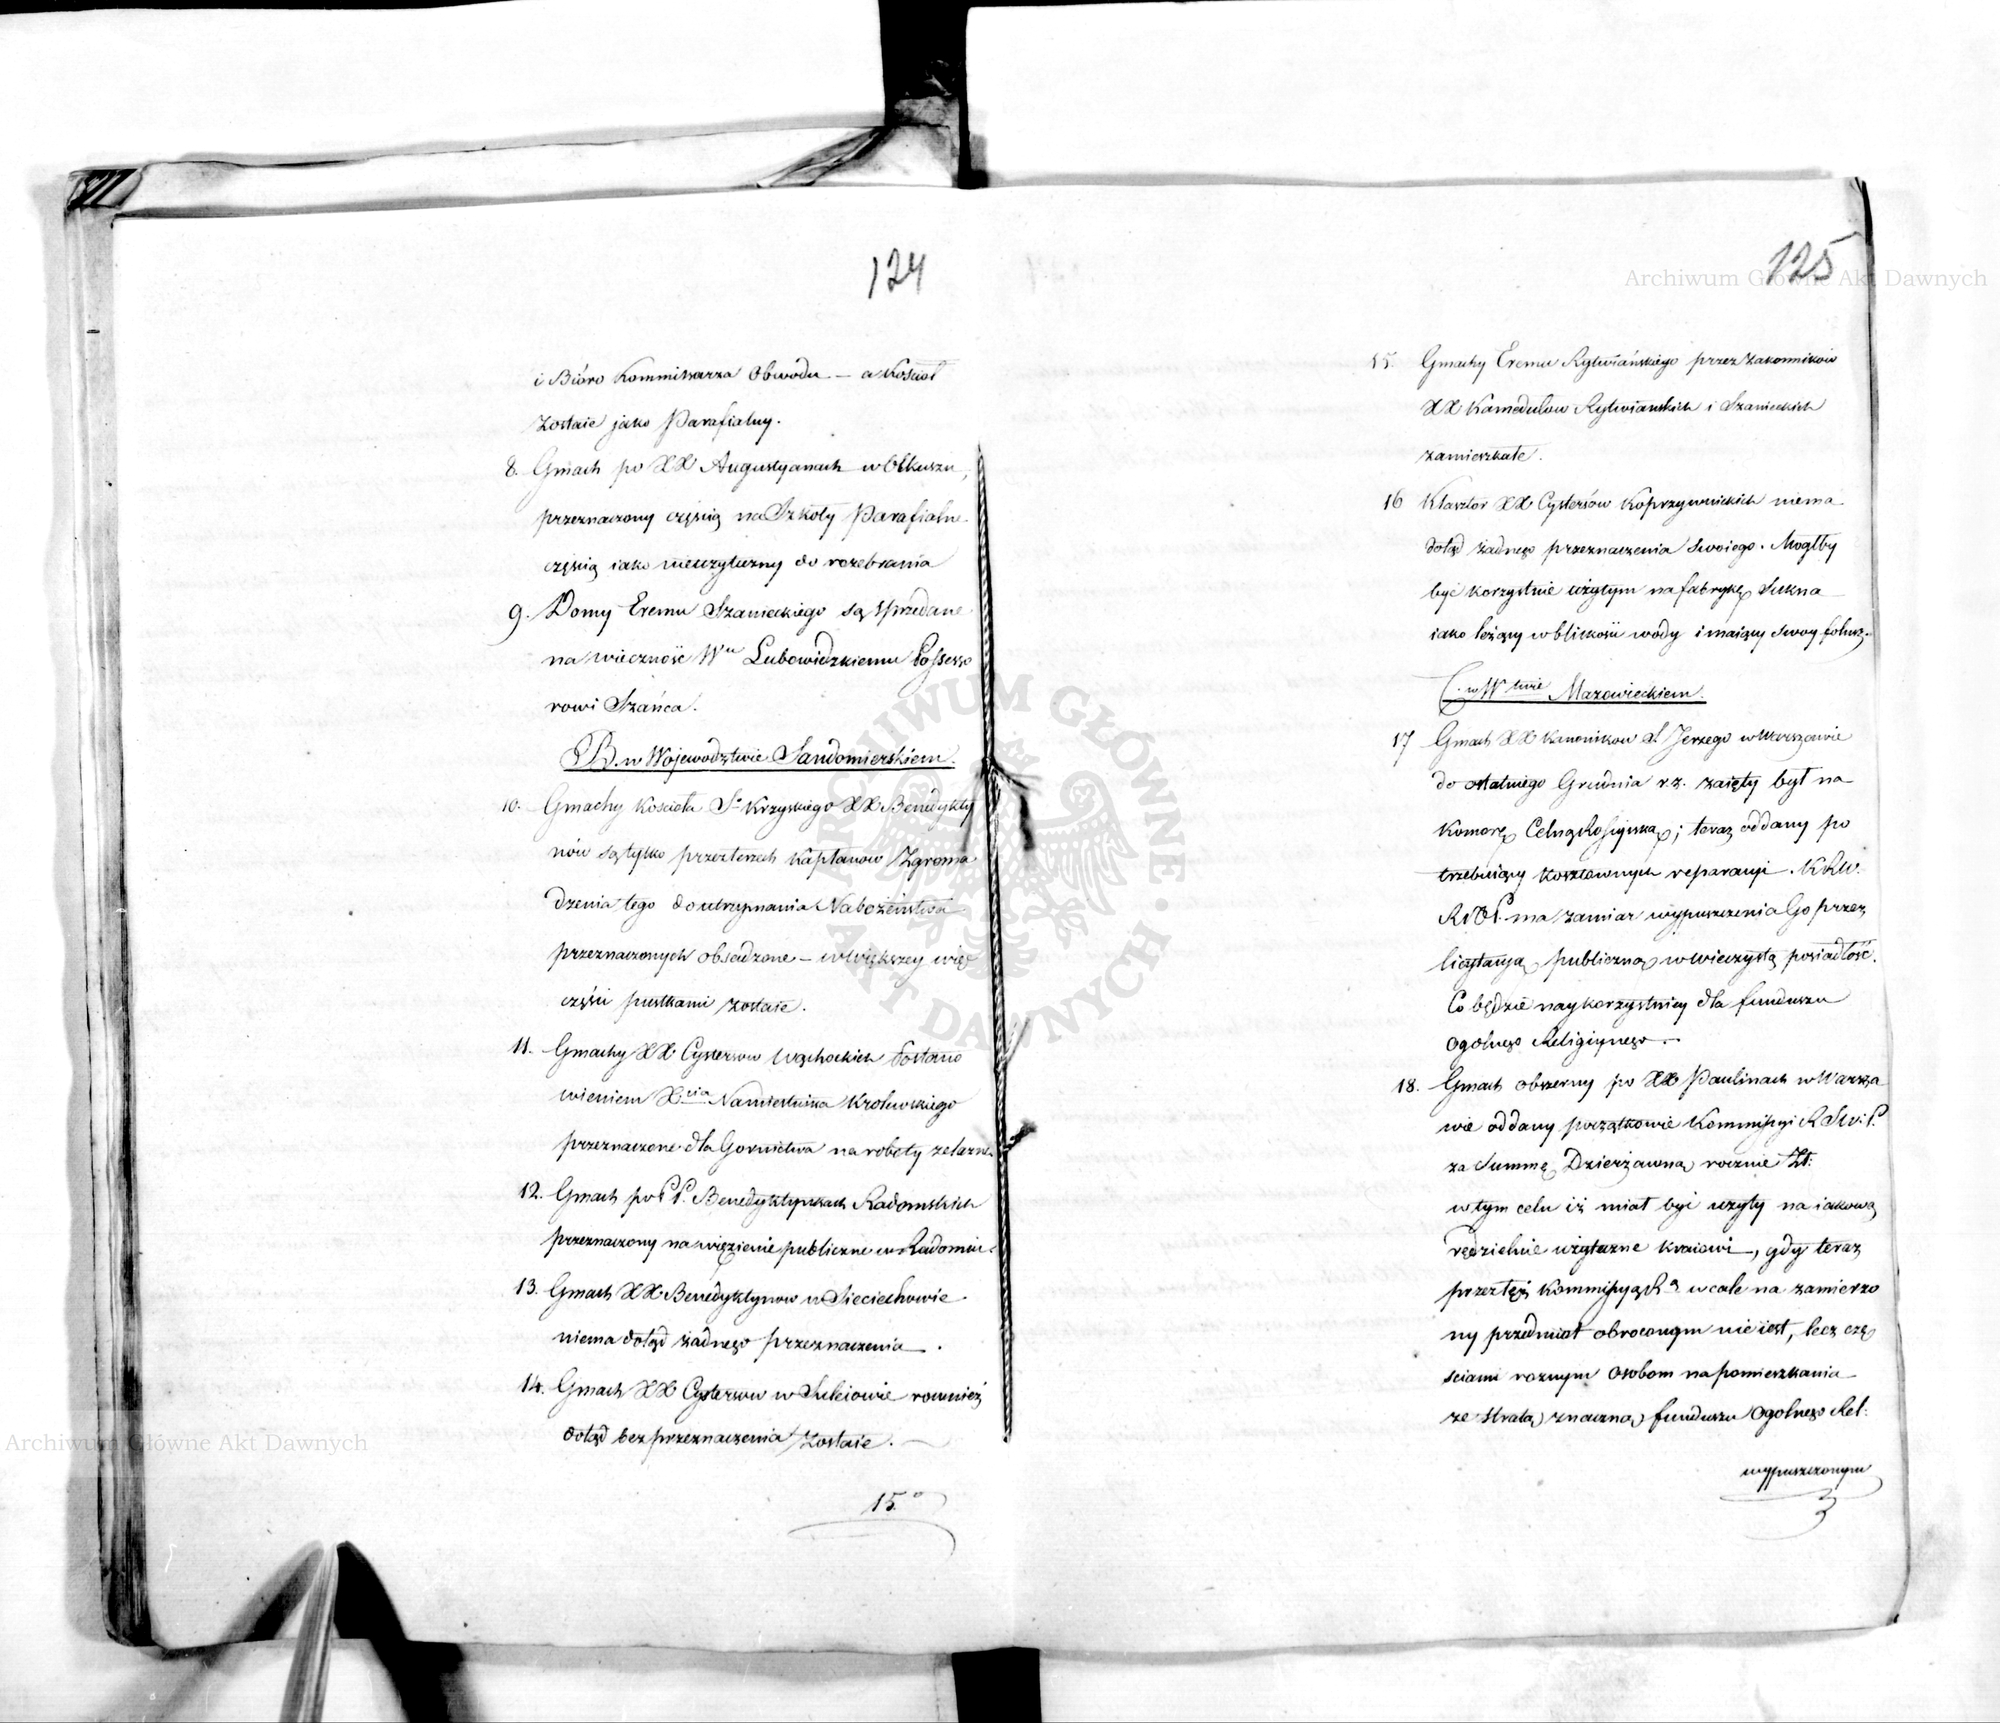 124
i Bióro Kommissarza Obwodu – a Kościoł
zostaie jako Parafialny.
8. Gmach po XX Augustyanach w Olkuszu,
przeznaczony częścią na Szkoły Parafialne
częścią iako nieużyteczny do rozebrania
9. Domy Eremu Szanieckiego są sprzedane
na wieczność Wmu Lubowidzkiemu Possesso
rowi Szańca.
B. w Wojewodztwie Sandomierskiem.
10. Gmachy Kościoła St Krzyskiego XX Benedykty
nów są tylko przez trzech Kapłanow Zgroma
dzenia tego do utrzymania Nabożeństwa
przeznaczonych obsadzone – w większey więc
części pustkami zostaie.
11. Gmachy XX Cystersow Wąchockich Postano
wieniem Xcia Namiestnika Krolewskiego
przeznaczone dla Gornictwa na roboty zelazne
12. Gmach po PP. Benedyktynkach Radomskich
przeznaczony na więzienie publiczne w Radomiu.
13. Gmach XX Benedyktynow w Sieciechowie
niema dotąd żadnego przeznaczenia.
14. Gmach XX Cystersow w Suleiowie rownież
dotąd bez przeznaczenia zostaie. –
15.
125
15. Gmachy Eremu Rytwiańskiego przez Zakonnikow
XX Kamedulow Rytwianskich i Szanieckich
zamieszkałe.
16 Klasztor XX Cystersów Koprzywnickich niema
dotąd żadnego przeznaczenia swoiego. Mogłby
być korzystnie użytym na fabrykę Sukna
iako leżący w bliskości wody i maiący swoy folusz.
C. w Wtwie Mazowieckiem.
17 Gmach XX Kanonikow S. Jerzego w Warszawie
do ostatniego Grudnia r. z. zaięty był na
Komorę Celną Rossyiską; teraz oddany po
trzebuiący kosztownych reparacyi. KRW.
R i OP. ma zamiar wypuszczenia Go przez
licytacyą publiczną w wieczystą posiadłość.
Co będzie naykorzystniey dla funduszu
ogolnego Religiynego –
18. Gmach obszerny po XX Paulinach w Warsza
wie oddany początkowie Kommissyi R S W: i P.
za Summę Dzierżawną rocznie Zł:
w tym celu iż miał być użyty na iakową
rędzielnie użyteczne kraiowi, gdy teraz
przez tęż Kommissyą Rą wcale na zamierzo
ny przedmiot obroconym nie iest, lecz czę
sciami roznym osobom na pomieszkania
ze stratą znaczną funduszu Ogolnego Rel:
wypuszczonym
Archiwum Główne Akt Dawnych
Archiwum Główne Akt Dawnych
ARCHIWUM GŁÓWNE • AKT DAWNYCH •